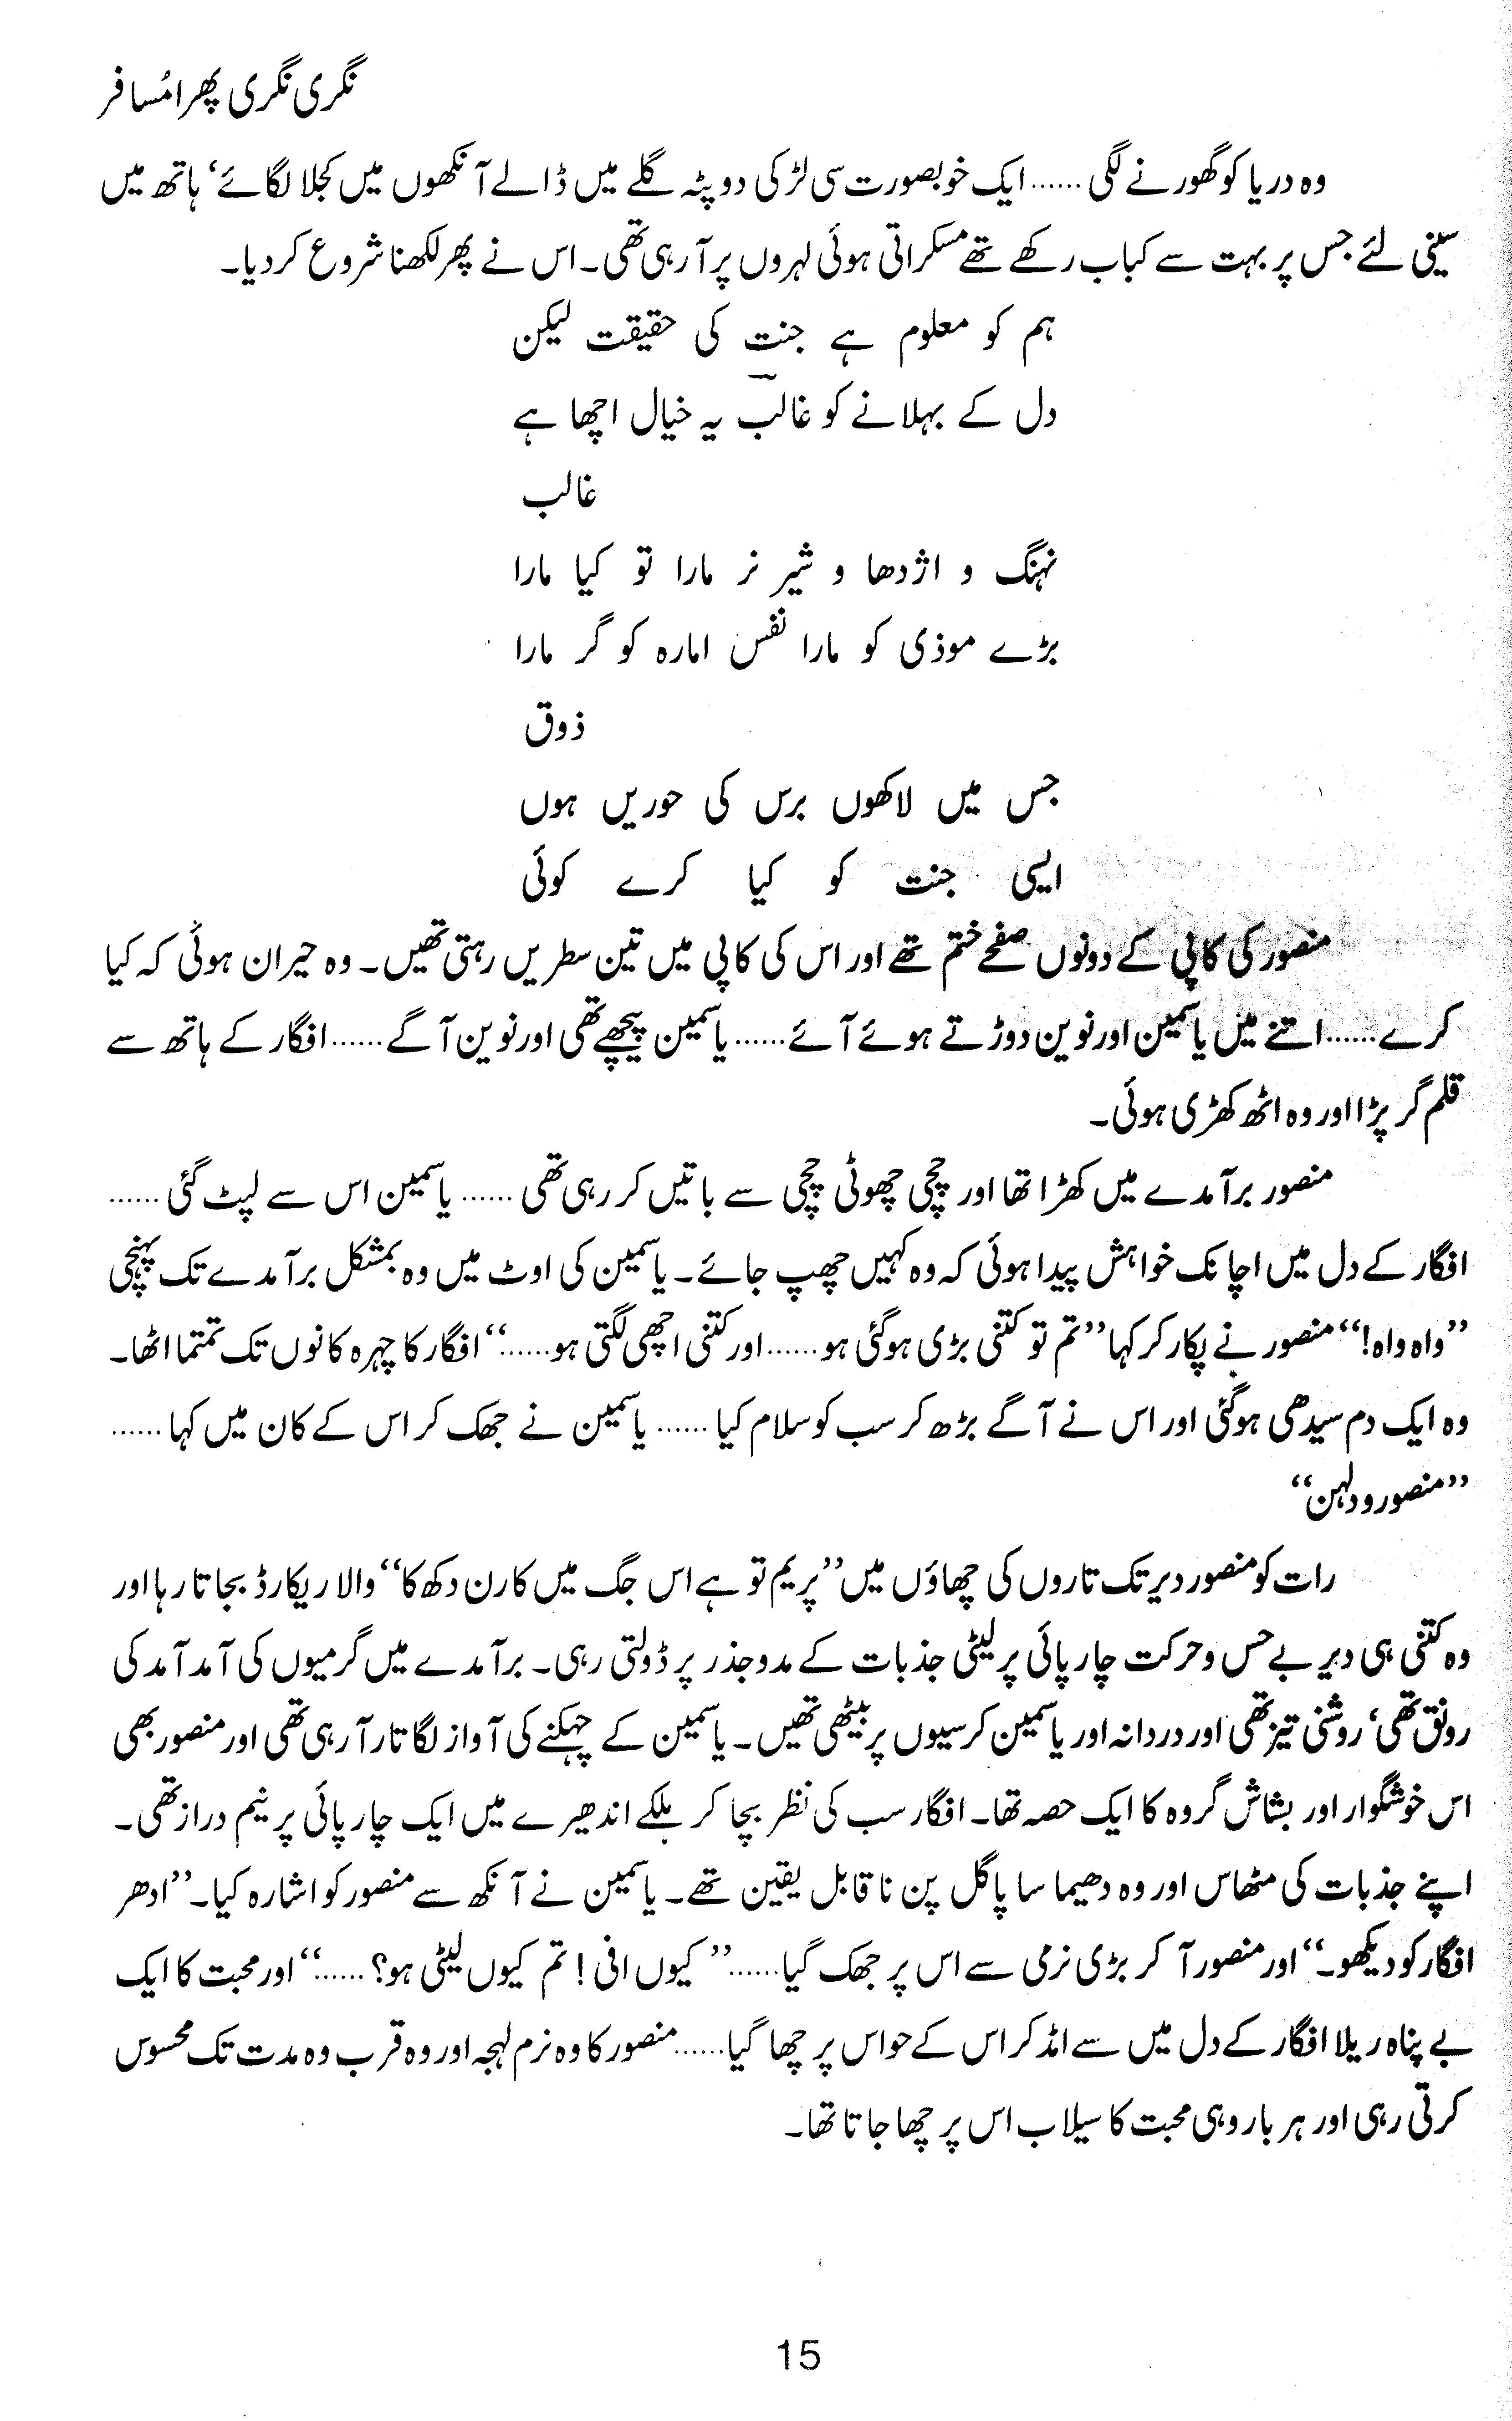 نگری نگری پھرا مُسافر
وہ دریا کو گھورنے لگی ...... ایک خوبصورت سی لڑکی دوپٹہ گلے میں ڈالے آنکھوں میں کجلا لگائے‘ ہاتھ میں
سینی لئے جس پر بہت سے کباب رکھے تھے مسکراتی ہوئی لہروں پر آ رہی تھی۔ اس نے پھر لکھنا شروع کر دیا۔
ہم کو معلوم ہے جنت کی حقیقت لیکن
دل کے بہلانے کو غالبؔ یہ خیال اچھا ہے
غالب
نہنگ و اژدھا و شیر نر مارا تو کیا مارا
بڑے موذی کو مارا نفس امارہ کو گر مارا
ذوق
جس میں لاکھوں برس کی حوریں ہوں
ایسی جنت کو کیا کرے کوئی
منصور کی کاپی کے دونوں صفحے ختم تھے اور اس کی کاپی میں تین سطریں رہتی تھیں۔ وہ حیران ہوئی کہ کیا
کرے...... اتنے میں یاسمین اور نوین دوڑتے ہوئے آئے...... یاسمین پیچھے تھی اور نوین آگے...... افگار کے ہاتھ سے
قلم گر پڑا اور وہ اٹھ کھڑی ہوئی۔
منصور برآمدے میں کھڑا تھا اور چچی چھوٹی چچی سے باتیں کر رہی تھی ...... یاسمین اس سے لپٹ گئی ......
افگار کے دل میں اچانک خواہش پیدا ہوئی کہ وہ کہیں چھپ جائے۔ یاسمین کی اوٹ میں وہ بمشکل برآمدے تک پہنچی
”واہ واہ!“ منصور نے پکار کر کہا ”تم تو کتنی بڑی ہو گئی ہو...... اور کتنی اچھی لگتی ہو......“ افگار کا چہرہ کانوں تک تمتما اٹھا۔
وہ ایک دم سیدھی ہو گئی اور اس نے آگے بڑھ کر سب کو سلام کیا ...... یاسمین نے جھک کر اس کے کان میں کہا ......
”منصور و دلہن“
رات کو منصور دیر تک تاروں کی چھاؤں میں ”پریم تو ہے اس جگ میں کارن دکھ کا“ والا ریکارڈ بجاتا رہا اور
وہ کتنی ہی دیر بے حس و حرکت چارپائی پر لیٹی جذبات کے مدوجذر پر ڈولتی رہی۔ برآمدے میں گرمیوں کی آمد آمد کی
رونق تھی‘ روشنی تیز تھی اور دردانہ اور یاسمین کرسیوں پر بیٹھی تھیں۔ یاسمین کے چہکنے کی آواز لگاتار آ رہی تھی اور منصور بھی
اس خوشگوار اور بشاش گروہ کا ایک حصہ تھا۔ افگار سب کی نظر بچا کر ہلکے اندھیرے میں ایک چارپائی پر نیم دراز تھی۔
اپنے جذبات کی مٹھاس اور وہ دھیما سا پاگل پن ناقابل یقین تھے۔ یاسمین نے آنکھ سے منصور کو اشارہ کیا۔ ”ادھر
افگار کو دیکھو۔“ اور منصور آ کر بڑی نرمی سے اس پر جھک گیا......” کیوں افی! تم کیوں لیٹی ہو؟ ......“ اور محبت کا ایک
بے پناہ ریلا افگار کے دل میں سے امڈ کر اس کے حواس پر چھا گیا...... منصور کا وہ نرم لہجہ اور وہ قرب وہ مدت تک محسوس
کرتی رہی اور ہر بار وہی محبت کا سیلاب اس پر چھا جاتا تھا۔
15